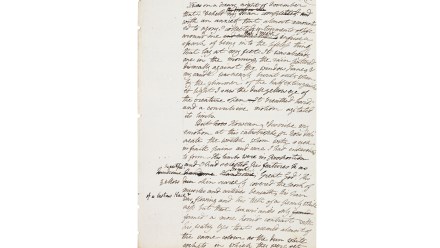 It was on a dreary night of November
that I beheld my man completed
with an anxiety that almost amount
ed to agony I collected instruments of life
around me that I might infuse a
spark of being into the lifeless thing
that lay at my feet. It was already
one in the morning, the rain pattered
dismally against the window panes &
my candle was nearly burnt out when
by the glimmer of the half extinguish
ed light I saw the dull yellow eye of
the creature open It breathed hard
and a convulsive motion agitated
its limbs
But how How can I describe my
emotion at this catastrophe or how deli
neate the wretch whom with such
infinite pains and care I had endeavoured
to form. His limbs were in proportion
and I had selected his features as
handsome Great God! His
skin scarcely covered the work of
muscles and arteries beneath his hair
of a lustrous black &
flowing and his teeth of a pearly white
ness but these only
formed a more horrid contrast with
his watry eyes that seemed almost of
the same colour as the dun white
sockets in which they were set